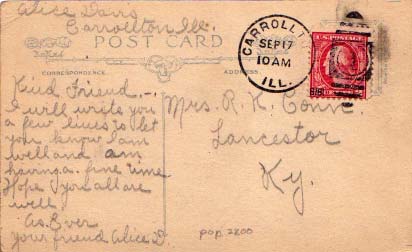 Alice Davis
Carrollton Ill.
POST CARD
CARROLLT
SEP 17
10 AM
ILL.
CORRESPONDENCE
ADDRESS
Kind Friend,-
I will write you
a few lines to let
you know I am
well and am
having a fine time
Hope you all are
well
As Ever
your friend Alice D
Mrs. R. K. Conn
Lancestor
Ky.
pop. 2200